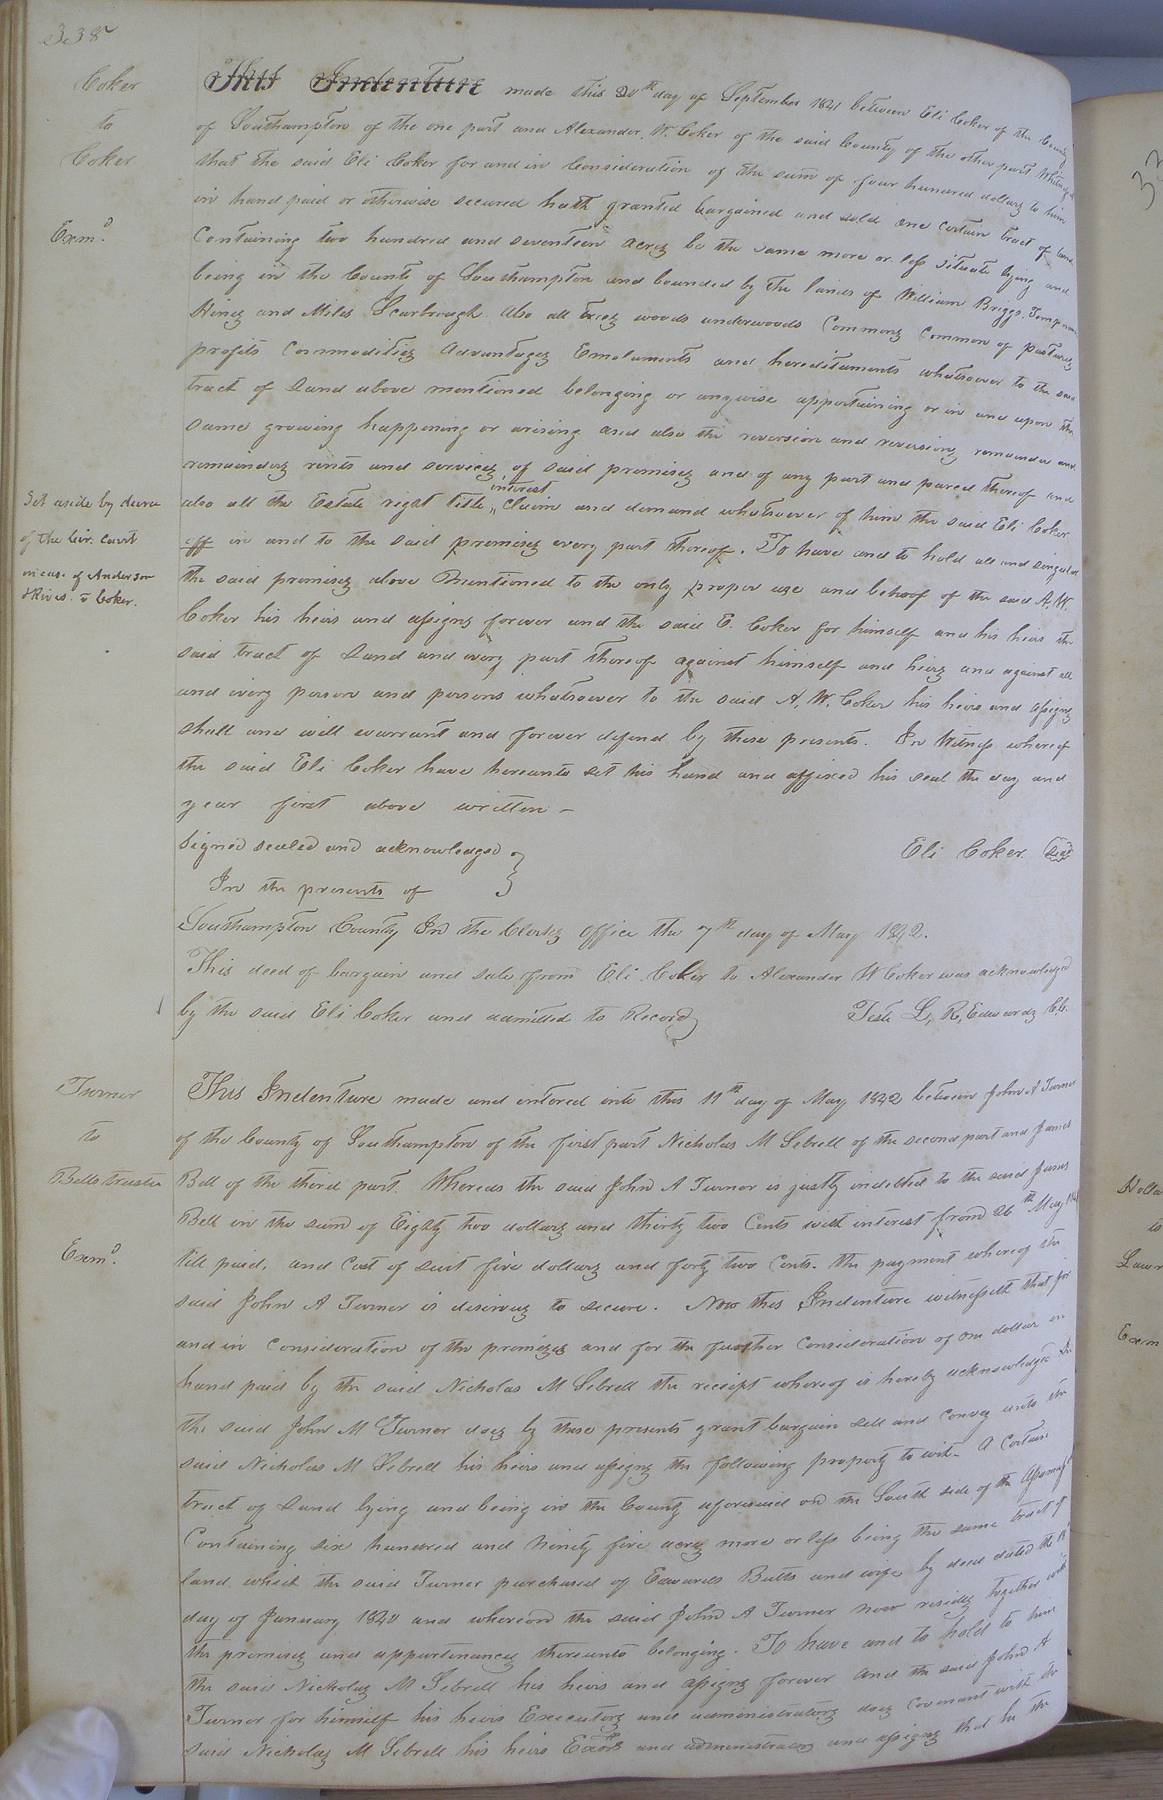 338
Coker
to
Coker
Exmd.
This Indenture made this 20th day of September 1841 between Eli Coker of the County
of Southampton of the one part and Alexander. W. Coker of the said County of the other part Witnesseth
that the said Eli Coker for and in Consideration of the sum of four hundred dollars to him
in hand paid or otherwise secured hath granted bargained and sold one certain tract of land
Containing two hundred and seventeen acres be the same more or less situate lying and
being in the County of Southampton and bounded by the lands of William Briggs,
Hines and Miles Scarbrough. Also all trees woods underwoods Commons Common of pastures
profits Commodities Advantages Emoluments and hereditaments whatsoever to the said
tract of Land above mentioned belonging or anywise appertaining or in and upon the
same growing happening or arising and also the reversion and reversions remainder and
remainders rents and services of said premises and of any part and parcel thereof and
Set aside by decree
of the Cir. Court
in case of Anderson
& Rives. v Coker.
also all the Estate right title interest Claim and demand whatsoever of him the said Eli Coker
off in and to the said premises every part thereof. To have and to hold all and singular
the said premises above Mentioned to the only proper use and behoof of the said A. W.
Coker his heirs and assigns forever and the said E. Coker for himself and his heirs the
said tract of Land and every part thereof against himself and heirs and against all
and every person and persons whatsoever to the said A. W. Coker his heirs and assigns
shall and will warrant and forever defend by these presents. In Witness whereof
the said Eli Coker have hereunto set his hand and affixed his seal the day and
year first above written –
Signed sealed and acknowledged }
In the presents of
Eli Coker Seal
Southampton County In the Clerks Office the 7th day of May 1842.
This deed of bargain and sale from Eli Coker to Alexander W Coker was acknowledged
by the said Eli Coker and admitted to Record
Teste L, R, Edwards C,C.
Turner
to
Bells trustee
Exmd.
This Indenture made and entered into this 11th day of May 1842 between John A Turner
of the County of Southampton of the first part Nicholas M Sebrell of the second part and James
Bell of the third part. Whereas the said John A Turner is justly indebted to the said James
Bell in the sum of Eighty two dollars and thirty two Cents with interest from 26th May
till paid, and Cost of suit five dollars and forty two Cents. the payment whereof the
said John A Turner is desirous to secure. Now this Indenture witnesseth that for
and in Consideration of the premises and for the further Consideration of one dollar in
hand paid by the said Nicholas M Sebrell the receipt whereof is hereby acknowledged
the said John M Turner does by these presents grant bargain sell and convey unto the
said Nicholas M Sebrell his heirs and assigns the following property to wit– A Certain
tract of Land lying and being in the County aforesaid on the South side of the
Containing six hundred and Ninety five acres more or less being the same tract of
land which the said Turner purchased of Edwards Butts and wife by deed dated the
day of January 1840 and whereon the said John A Turner now resides together with
the premises and appurtenances thereunto belonging. To have and to hold to him
the said Nicholas M Sebrell his heirs and assigns forever And the said John A
Turner for himself his heirs Executors and administrators does Covenant with the
said Nicholas M Sebrell his heirs Exors and administrators and assigns that he the